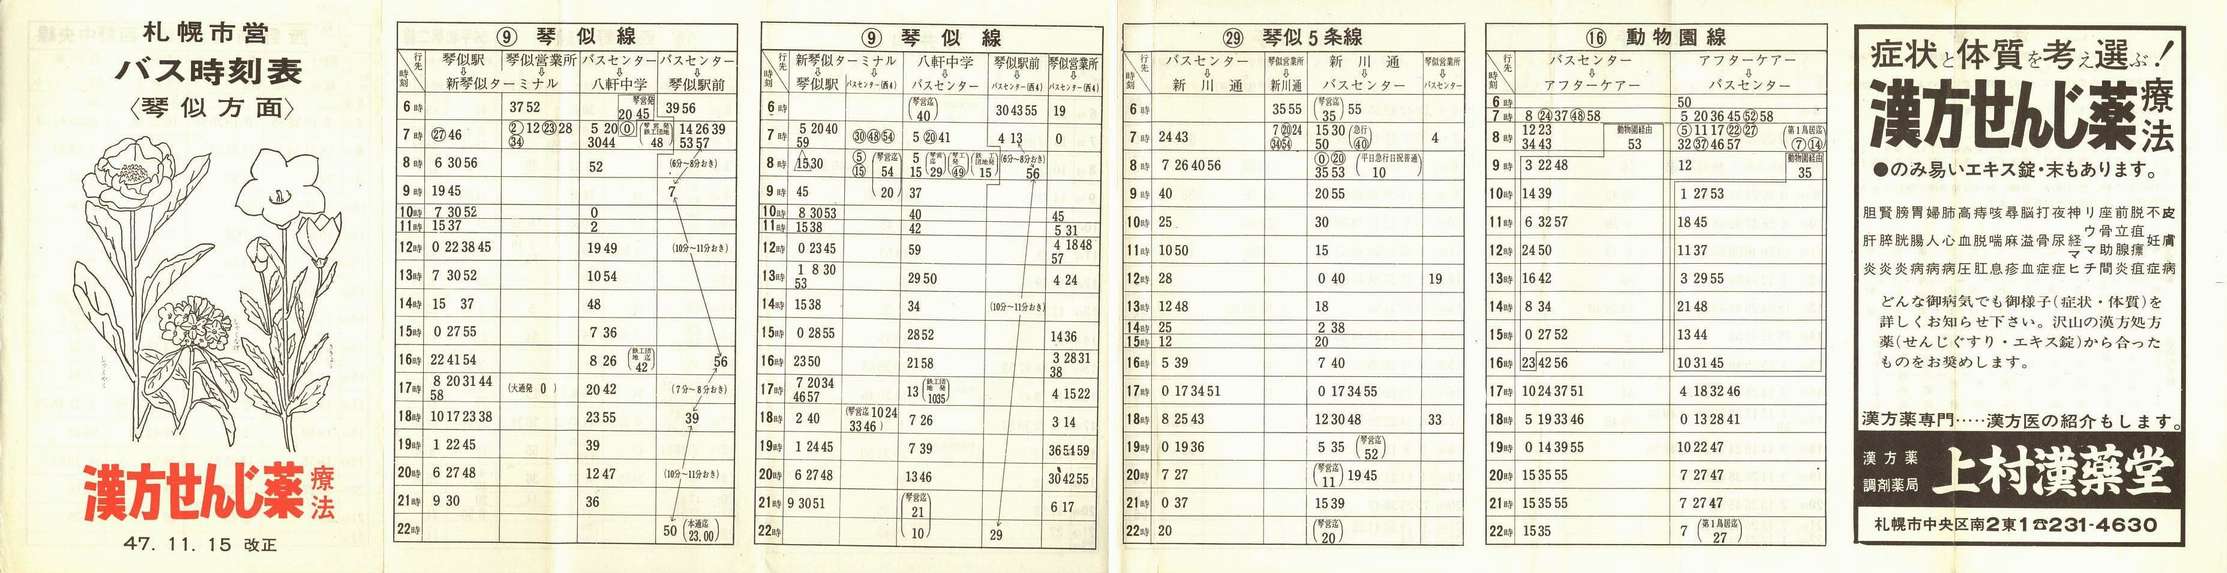 札幌市営
バス時刻表
〈琴似方面〉
漢方せんじ薬 療法
47. 11. 15 改正
⑨ 琴似線
行先 時刻 琴似駅⇩新琴似ターミナル 琴似営業所⇩新琴似ターミナル バスセンター⇩八軒中学 バスセンター⇩琴似駅前
6時 37 52 (琴営発 20 45) 39 56
7時 ㉗ 46 ② 12 ㉓ 28 ㉞ 5 20 ⓪ 30 44 (琴営発 鉄工団地 48) 14 26 39 53 57
8時 6 30 56 52 (6分～8分おき)
9時 19 45 7
10時 7 30 52 0
11時 15 37 2
12時 0 22 38 45 19 49 (10分～11分おき)
13時 7 30 52 10 54
14時 15 37 48
15時 0 27 55 7 36
16時 22 41 54 8 26 (鉄工団地迄 42) 56
17時 8 20 31 44 58 (大通発 0) 20 42 (7分～8分おき)
18時 10 17 23 38 23 55 39
19時 1 22 45 39
20時 6 27 48 12 47 (10分～11分おき)
21時 9 30 36
22時 50 (本通迄 23.00)
⑨ 琴似線
行先 時刻 新琴似ターミナル⇩琴似駅 新琴似ターミナル⇩バスセンター(西4) 八軒中学⇩バスセンター 琴似駅前⇩バスセンター(西4) 琴似営業所⇩バスセンター(西4)
6時 (琴営迄 40) 30 43 55 19
7時 5 20 40 59 ㉚ ㊽ 54 5 ⑳ 41 4 13 0
8時 15 30 ⑤ ⑮ (琴営迄 54) 5 15 (琴営迄 29) (琴工発 ㊾) (鉄工団地発 15) (6分～8分おき) 56
9時 45 (20) 37
10時 8 30 53 40 45
11時 15 38 42 5 31
12時 0 23 45 59 4 18 48 57
13時 1 8 30 53 29 50 4 24
14時 15 38 34 (10分～11分おき)
15時 0 28 55 28 52 14 36
16時 23 50 21 58 3 28 31 38
17時 7 20 34 46 57 13 (鉄工団地発 10 35) 4 15 22
18時 2 40 (琴営迄 10 24 33 46) 7 26 3 14
19時 1 24 45 7 39 36 54 59
20時 6 27 48 13 46 30 42 55
21時 9 30 51 (琴営迄 21) 6 17
22時 (10) 29
㉙ 琴似5条線
行先 時刻 バスセンター⇩新川通 琴似営業所⇩新川通 新川通⇩バスセンター 琴似営業所⇩バスセンター
6時 35 55 (琴営迄 35) 55
7時 24 43 7 ⑳ 24 ㉞ 54 15 30 50 (急行 ㊵) 4
8時 7 26 40 56 ⓪ ⑳ 35 53 (平日急行日祝普通 10)
9時 40 20 55
10時 25 30
11時 10 50 15
12時 28 0 40 19
13時 12 48 18
14時 25 2 38
15時 12 20
16時 5 39 7 40
17時 0 17 34 51 0 17 34 55
18時 8 25 43 12 30 48 33
19時 0 19 36 5 35 (琴営迄 52)
20時 7 27 (琴営迄 11) 19 45
21時 0 37 15 39
22時 20 (琴営迄 20)
⑯ 動物園線
行先 時刻 バスセンター⇩アフターケアー アフターケアー⇩バスセンター
6時 50
7時 8 ㉔ 37 ㊽ 58 5 20 36 45 52 58
8時 12 23 34 43 動物園経由 53 ⑤ 11 17 ㉒ ㉗ 32 ㊲ 46 57 (第1鳥居迄 ⑦ ⑭)
9時 3 22 48 12 動物園経由 35
10時 14 39 1 27 53
11時 6 32 57 18 45
12時 24 50 11 37
13時 16 42 3 29 55
14時 8 34 21 48
15時 0 27 52 13 44
16時 23 42 56 10 31 45
17時 10 24 37 51 4 18 32 46
18時 5 19 33 46 0 13 28 41
19時 0 14 39 55 10 22 47
20時 15 35 55 7 27 47
21時 15 35 55 7 27 47
22時 15 35 7 (第1鳥居迄 27)
症状と体質を考え選ぶ!
漢方せんじ薬 療法
●のみ易いエキス錠・末もあります。
胆腎膀胃婦肺高痔咳尋脳打夜神リ座前脱不皮
肝膵胱腸人心血脱喘麻溢骨尿経ウマチ骨助立腺疽瘭妊膚
炎炎炎病病病圧肛息疹血症症ヒチ間炎疽症病
どんな御病気でも御様子(症状・体質)を
詳しくお知らせ下さい。沢山の漢方処方
薬(せんじぐすり・エキス錠)から合った
ものをお奨めします。
漢方薬専門‥‥‥漢方医の紹介もします。
漢方薬
調剤薬局
上村漢薬堂
札幌市中央区南2東1☎231-4630